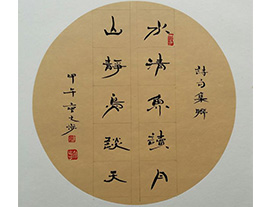 诗句集联
水清鱼读月
山静鸟谈天
甲午